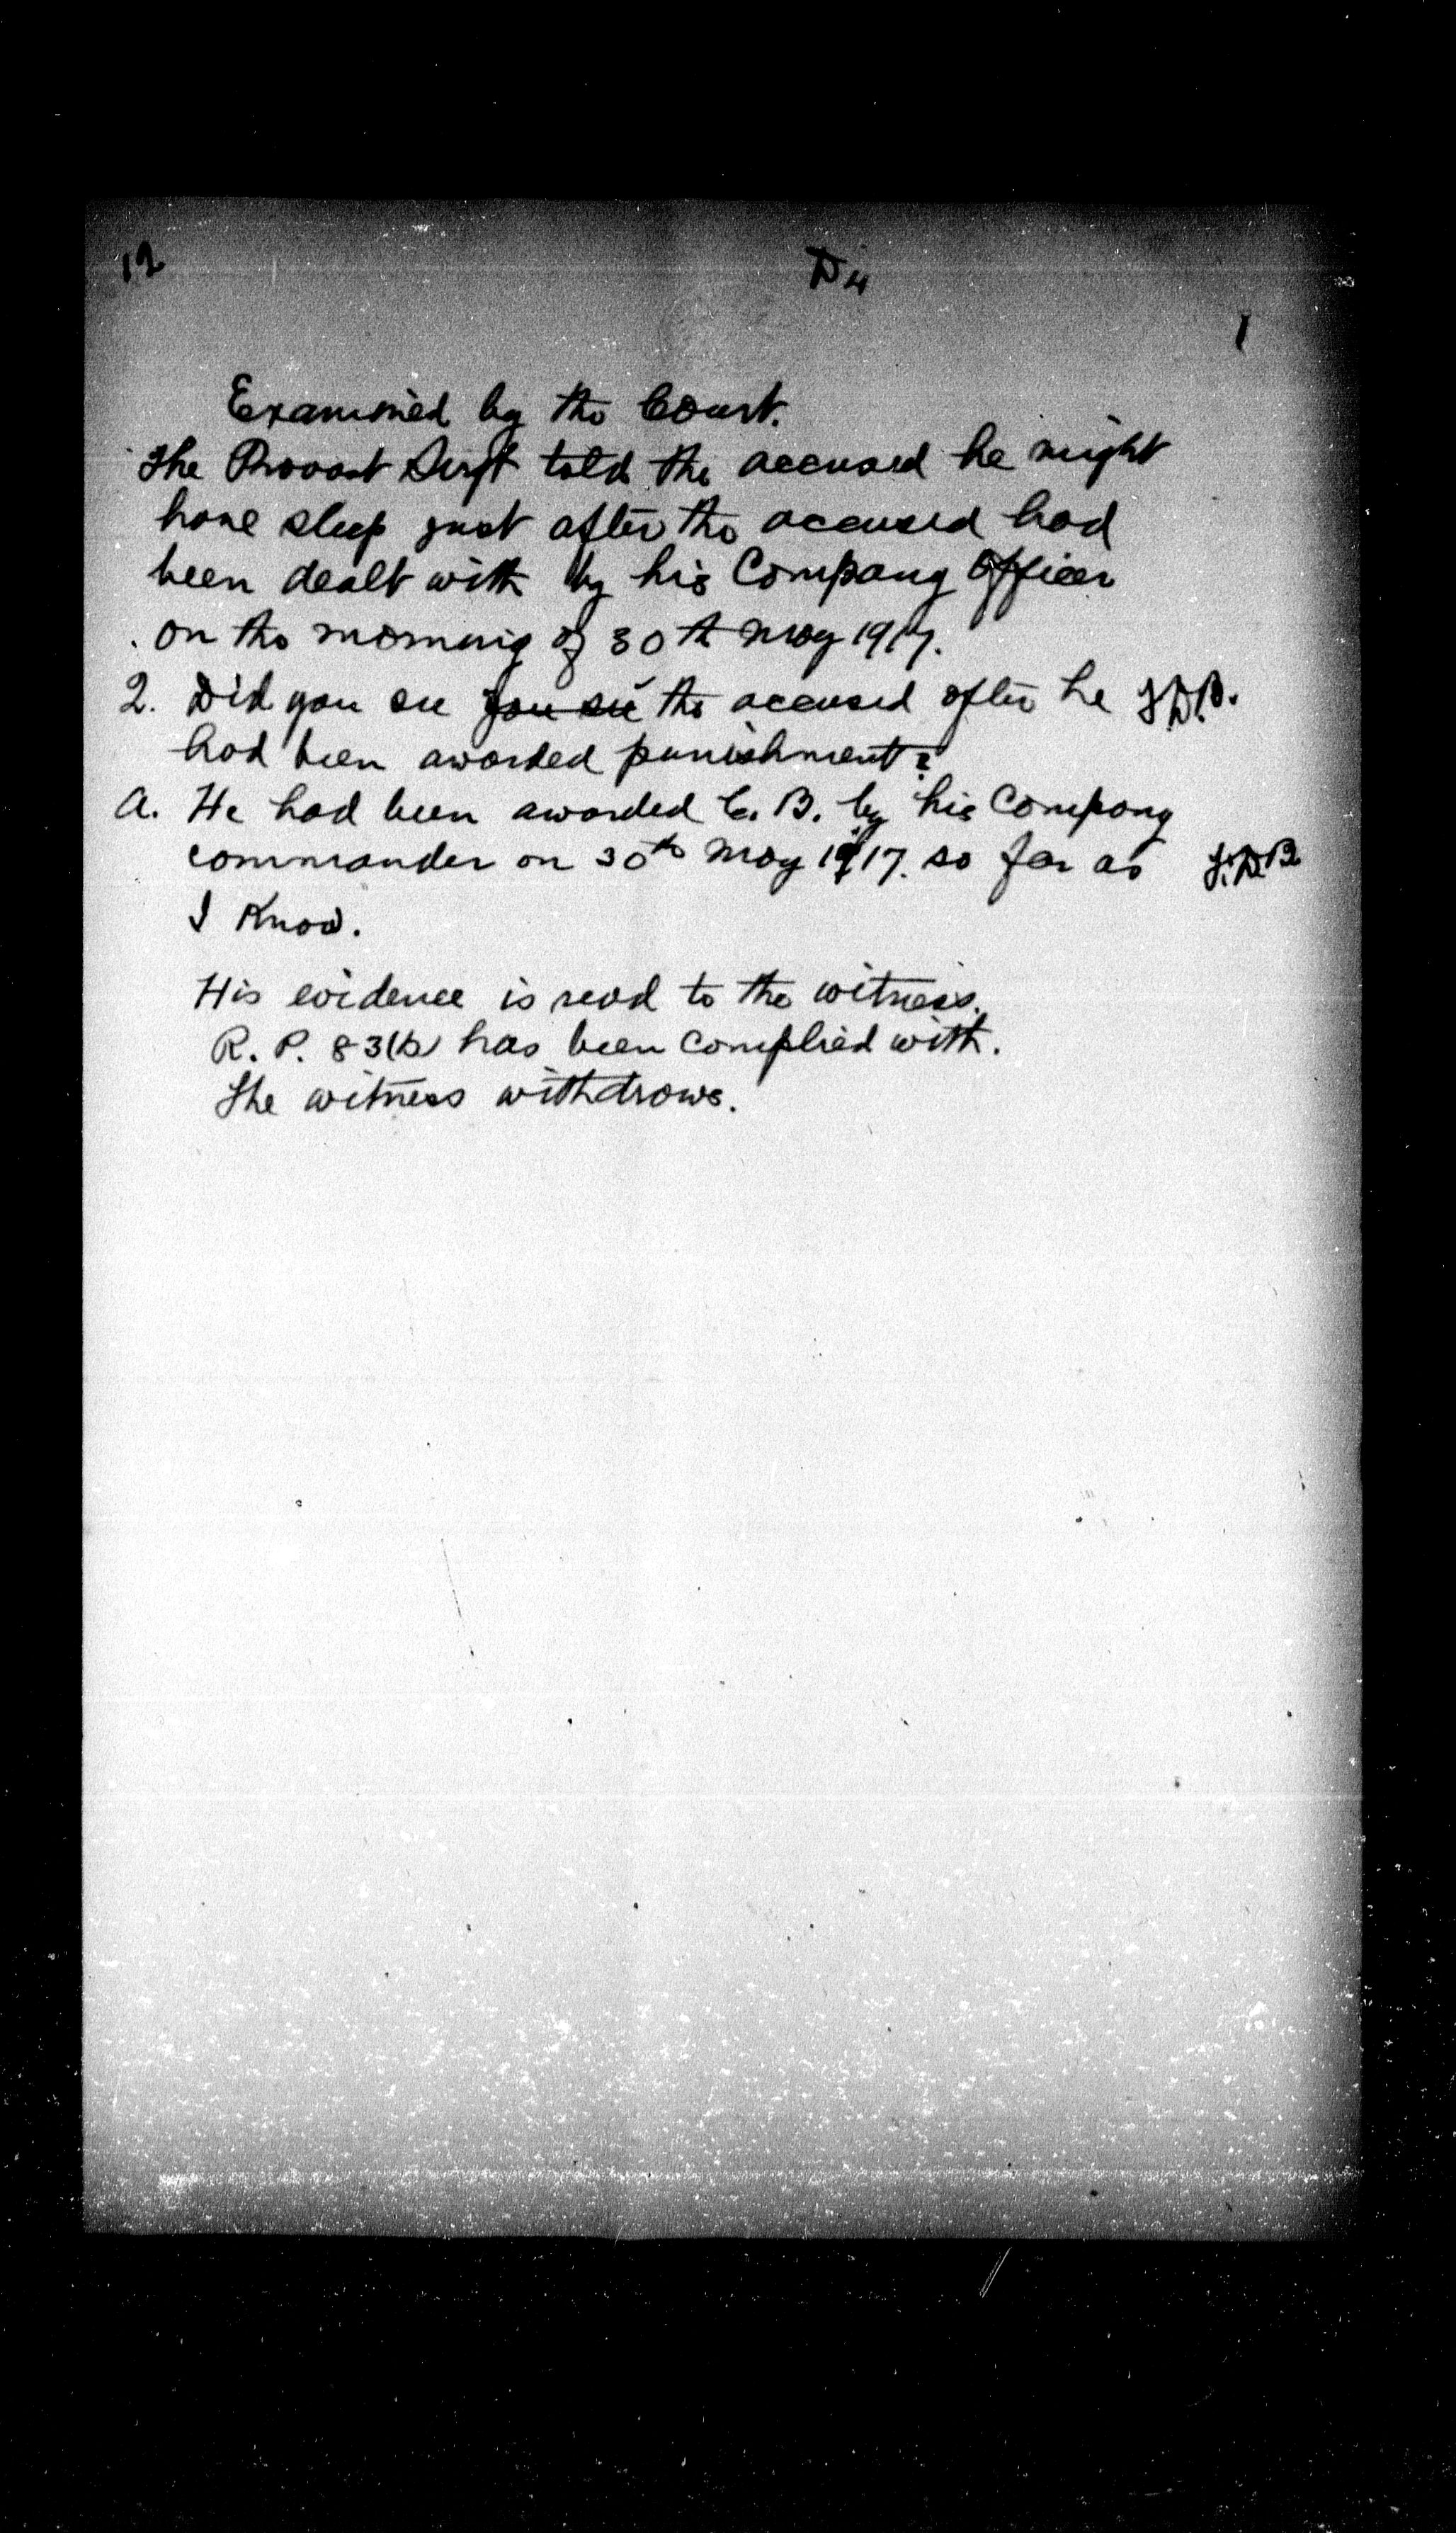 12
D4
1
Examined by the Court.
The Provost Sergt told the accused he might
have sleep just after the accused had
been dealt with by his Company Officer
on the morning of 30th May 1917.
Q. Did you see you see the accused after he
had been awarded punishment?
A. He had been awarded C. B. by his Company
commander on 30th May 1917. so far as
I know.
His evidence is read to the witness.
R. P. 83(b) has been complied with.
The witness withdraws.